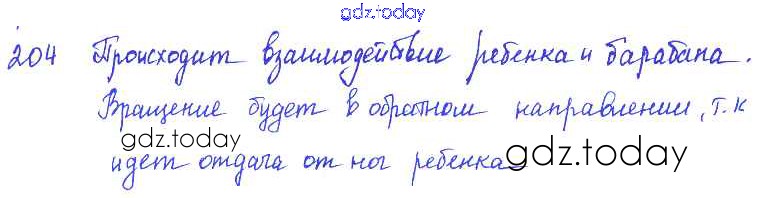 gdz.today
204 Происходит взаимодействие ребенка и барабана.
Вращение будет в обратном направлении, т.к
gdz.today
идет отдача от ног ребенка gdz.today